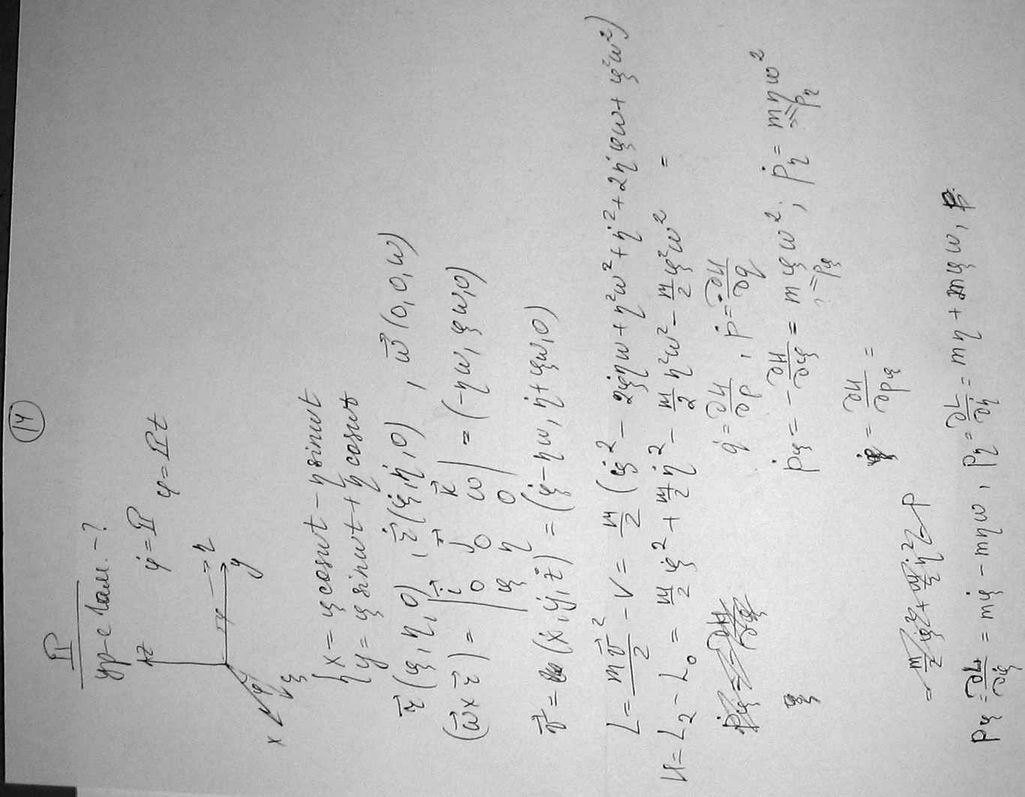 14
Π
ур-е Гам. - ?
φ̇ = Π φ = Πt
z
η
y
x ξ
{ x = ξ cosωt - η sinωt
y = ξ sinωt + η cosωt
r⃗ (ξ, η, 0), r⃗̇ (ξ̇, η̇, 0), ω⃗ (0, 0, ω)
(ω⃗ × r⃗) = | i⃗ j⃗ k⃗ ; 0 0 ω ; ξ η 0 | = (-ηω, ξω, 0)
v⃗ = (ẋ, ẏ, ż) = (ξ̇ - ηω, η̇ + ξω, 0)
L = mv⃗²/2 - V = m/2 (ξ̇² - 2ξ̇ηω + η²ω² + η̇² + 2η̇ξω + ξ²ω²)
H = L₂ - L₀ = m/2 ξ̇² + m/2 η̇² - m/2 η²ω² - m/2 ξ²ω² =
q̇ = ∂H/∂p, ṗ = -∂H/∂q
ṗξ = -∂H/∂ξ = mξω², ṗη = mηω²
= ṗξ = ṗη
ξ̇ = ∂H/∂pξ =
= m/2 ξ̇² + m/2 η̇²
pξ = ∂L/∂ξ̇ = mξ̇ - mηω, pη = ∂L/∂η̇ = mη̇ + mξω,